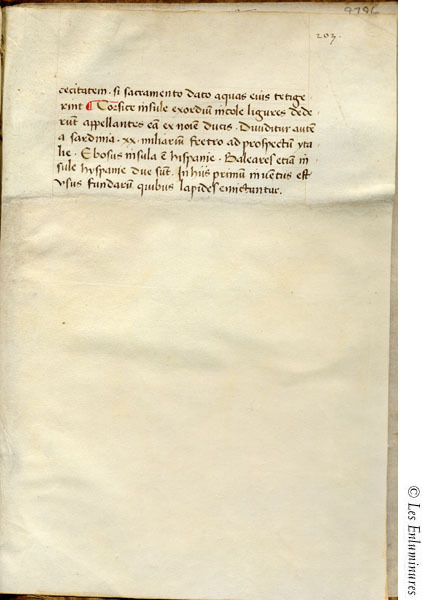 9796
207.
cecitatem. si sacramento dato aquas eius tetige
rint ¶ Corsice insule exordiū incole ligures dede
rūt appellantes eā ex noīe ducis. Diuiditur autē
a sardinia. xx. miliariū fretro ad prospectū yta
lie. Ebosus insula ē hispanie. Baleares etiā in
sule hyspanie due sūt. In hiis primum inuentus est
vsus fundarū quibus lapides emictuntur.
© Les Enluminures